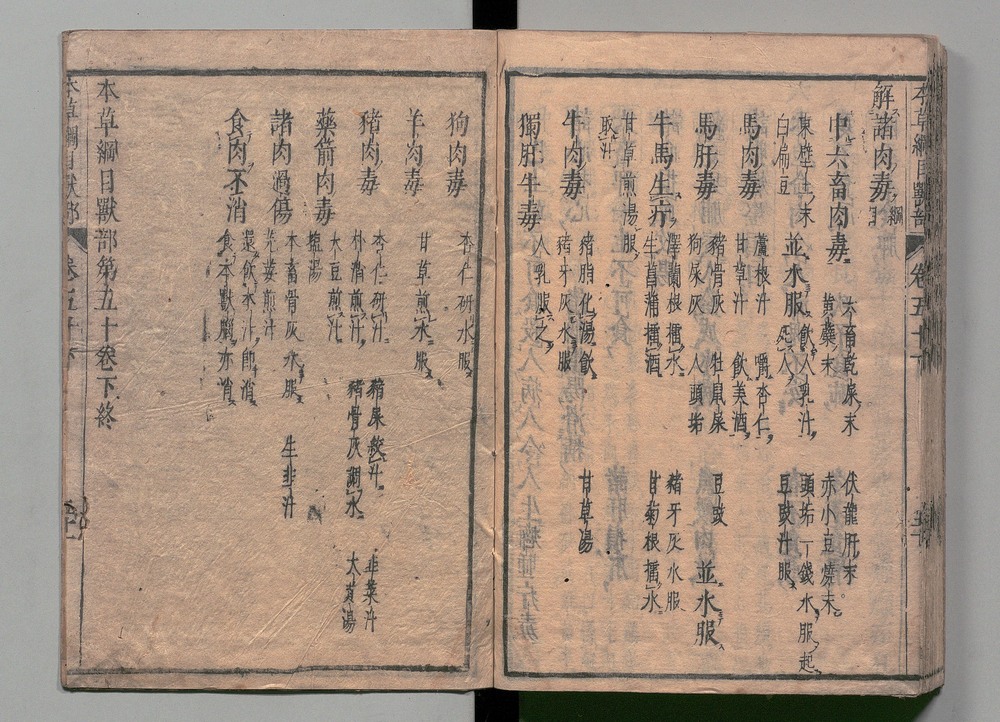 本草綱目獸部 卷五十下
解諸肉毒 綱目
中六畜肉毒 六畜乾屎末 伏龍肝末
黃蘗末 赤小豆燒末
東壁土末 飲人乳汁 頭垢一錢水服起
白扁豆 並水服 死人 豆豉汁服
馬肉毒 蘆根汁 嚼杏仁
甘草汁 飲美酒
馬肝毒 豬骨灰 牡鼠屎 豆豉
狗屎灰 人頭垢 並水服
牛馬生疔 澤蘭根擂水 豬牙灰水服
生菖蒲擂酒 甘菊根擂水
甘草煎湯服
取汁
牛肉毒 豬脂化湯飲 甘草湯
豬牙灰水服
獨肝牛毒 人乳服之
狗肉毒 杏仁研水服
羊肉毒 甘草煎水服
豬肉毒 杏仁研汁 豬屎絞汁 韭菜汁
朴消煎汁 豬骨灰調水 大黃湯
藥箭肉毒 大豆煎汁
鹽湯
諸肉過傷 本畜骨灰水服 生韭汁
芫荽煎汁
食肉不消 還飲本汁即消
食本獸腦亦消
本草綱目獸部第五十卷下終
本草綱目獸部 卷五十下